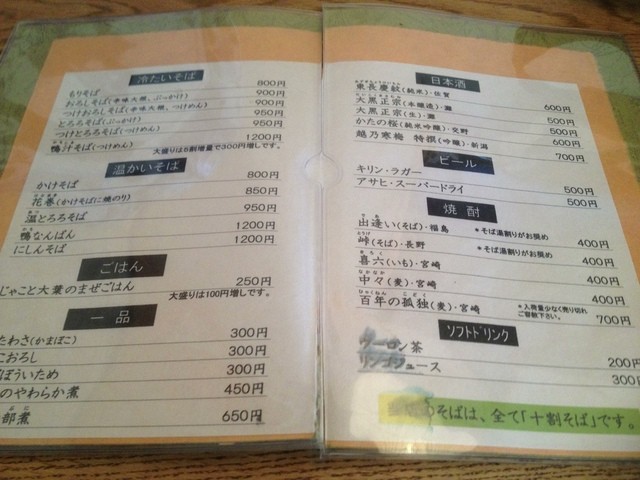 冷たいそば
もりそば 800円
おろしそば(辛味大根、ぶっかけ) 900円
つけおろしそば(辛味大根、つけめん) 900円
とろろそば(ぶっかけ) 950円
つけとろろそば(つけめん) 950円
鴨汁そば(つけめん) 1200円
大盛りは5割増量で300円増しです。
温かいそば
かけそば 800円
花巻(かけそばに焼のり) 850円
温とろろそば 950円
鴨なんばん 1200円
にしんそば 1200円
ごはん
じゃこと大葉のまぜごはん 250円
大盛りは100円増しです。
一品
たわさ(かまぼこ) 300円
こおろし 300円
ぼういため 300円
のやわらか煮 450円
部煮 650円
日本酒
東長慶紋(純米)・佐賀 600円
大黒正宗(本醸造)・灘 500円
大黒正宗(生)・灘 500円
かたの桜(純米吟醸)・交野 600円
越乃寒梅 特撰(吟醸)・新潟 700円
ビール
キリン・ラガー 500円
アサヒ・スーパードライ 500円
焼酎
出逢い(そば)・福島 *そば湯割りがお奨め 400円
峠(そば)・長野 *そば湯割りがお奨め 400円
喜六(いも)・宮崎 400円
中々(麦)・宮崎 400円
百年の孤独(麦)・宮崎 *入荷量少なく売り切れ ご容赦下さい。 700円
ソフトドリンク
ウーロン茶 200円
リンゴジュース 300
のそばは、全て「十割そば」です。